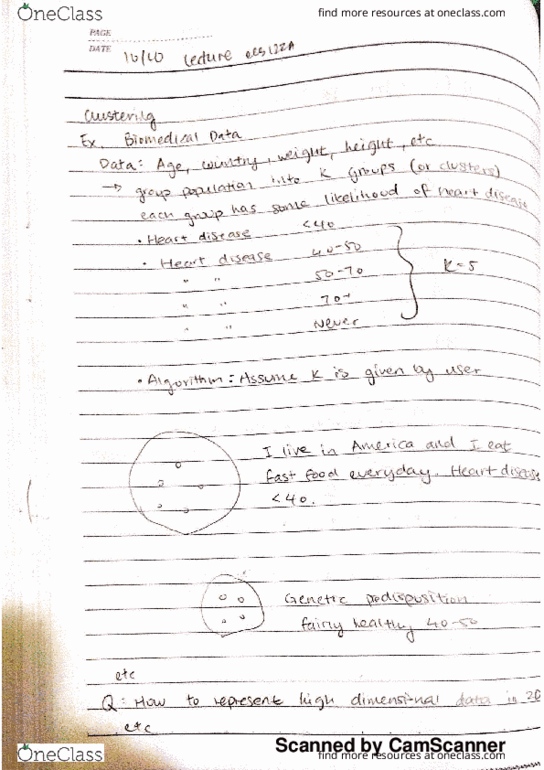 OneClass
find more resources at oneclass.com
PAGE
DATE 10/10 Lecture ecs122A
Clustering
Ex. Biomedical Data
Data: Age, country, weight, height, etc
→ group population into K groups (or clusters)
each group has some likelihood of heart disease
• Heart disease <40
• Heart disease 40-50
" " 50-70
" " 70+
" " Never
K=5
• Algorithm: Assume K is given by user
I live in America and I eat
fast food everyday. Heart disease
<40.
Genetic pedisposition
fairly healthy 40-50
etc
Q: How to represent high dimensional data in 2D
etc
Scanned by CamScanner
OneClass
find more resources at oneclass.com